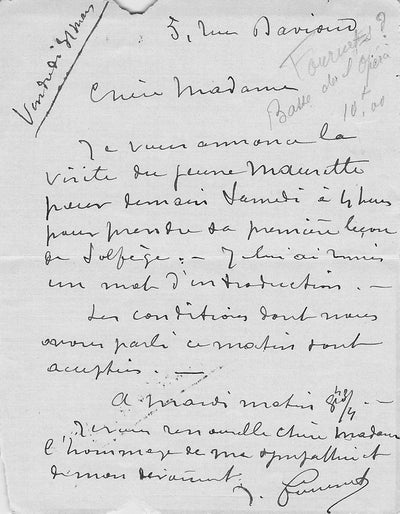 Vendredi 31 mars
5, rue Davioud
Fournets ?
Basse de l'Opéra
10,00
Chère Madame
Je vous annonce la
visite du jeune Maurette
pour demain Samedi à 4 heures
pour prendre sa première leçon
de Solfège. – Je lui ai remis
un mot d'introduction. –
Les conditions dont nous
avons parlé ce matin sont
acceptées. –
A mardi matin –
Je vous renouvelle Chère Madame
l'hommage de ma sympathie et
de mon dévouement.